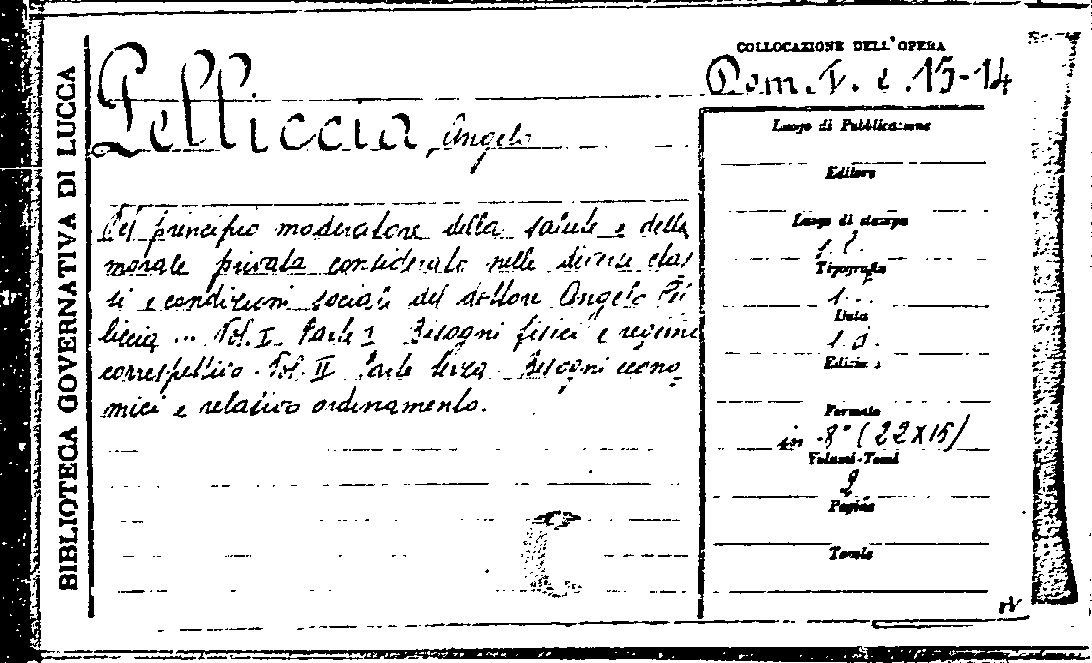 BIBLIOTECA GOVERNATIVA DI LUCCA
COLLOCAZIONE DELL'OPERA
Dom. V. e. 15-14
Pelliccia, Angelo
Del principio moderatore della salute e della
morale privata considerato nelle diverse clas
si e condizioni sociali del dottore Angelo Pel
liccia ... Vol. I Parte I Bisogni fisici e regime
correspettivo. Vol. II Parte terza Bisogni econo
mici e relativo ordinamento.
Luogo di Pubblicazione
Editore
Luogo di stampa
Tipografia
Data
Edizione
Formato
in -8° (22X15)
Volumi-Tomi
2
Pagine
Tomie